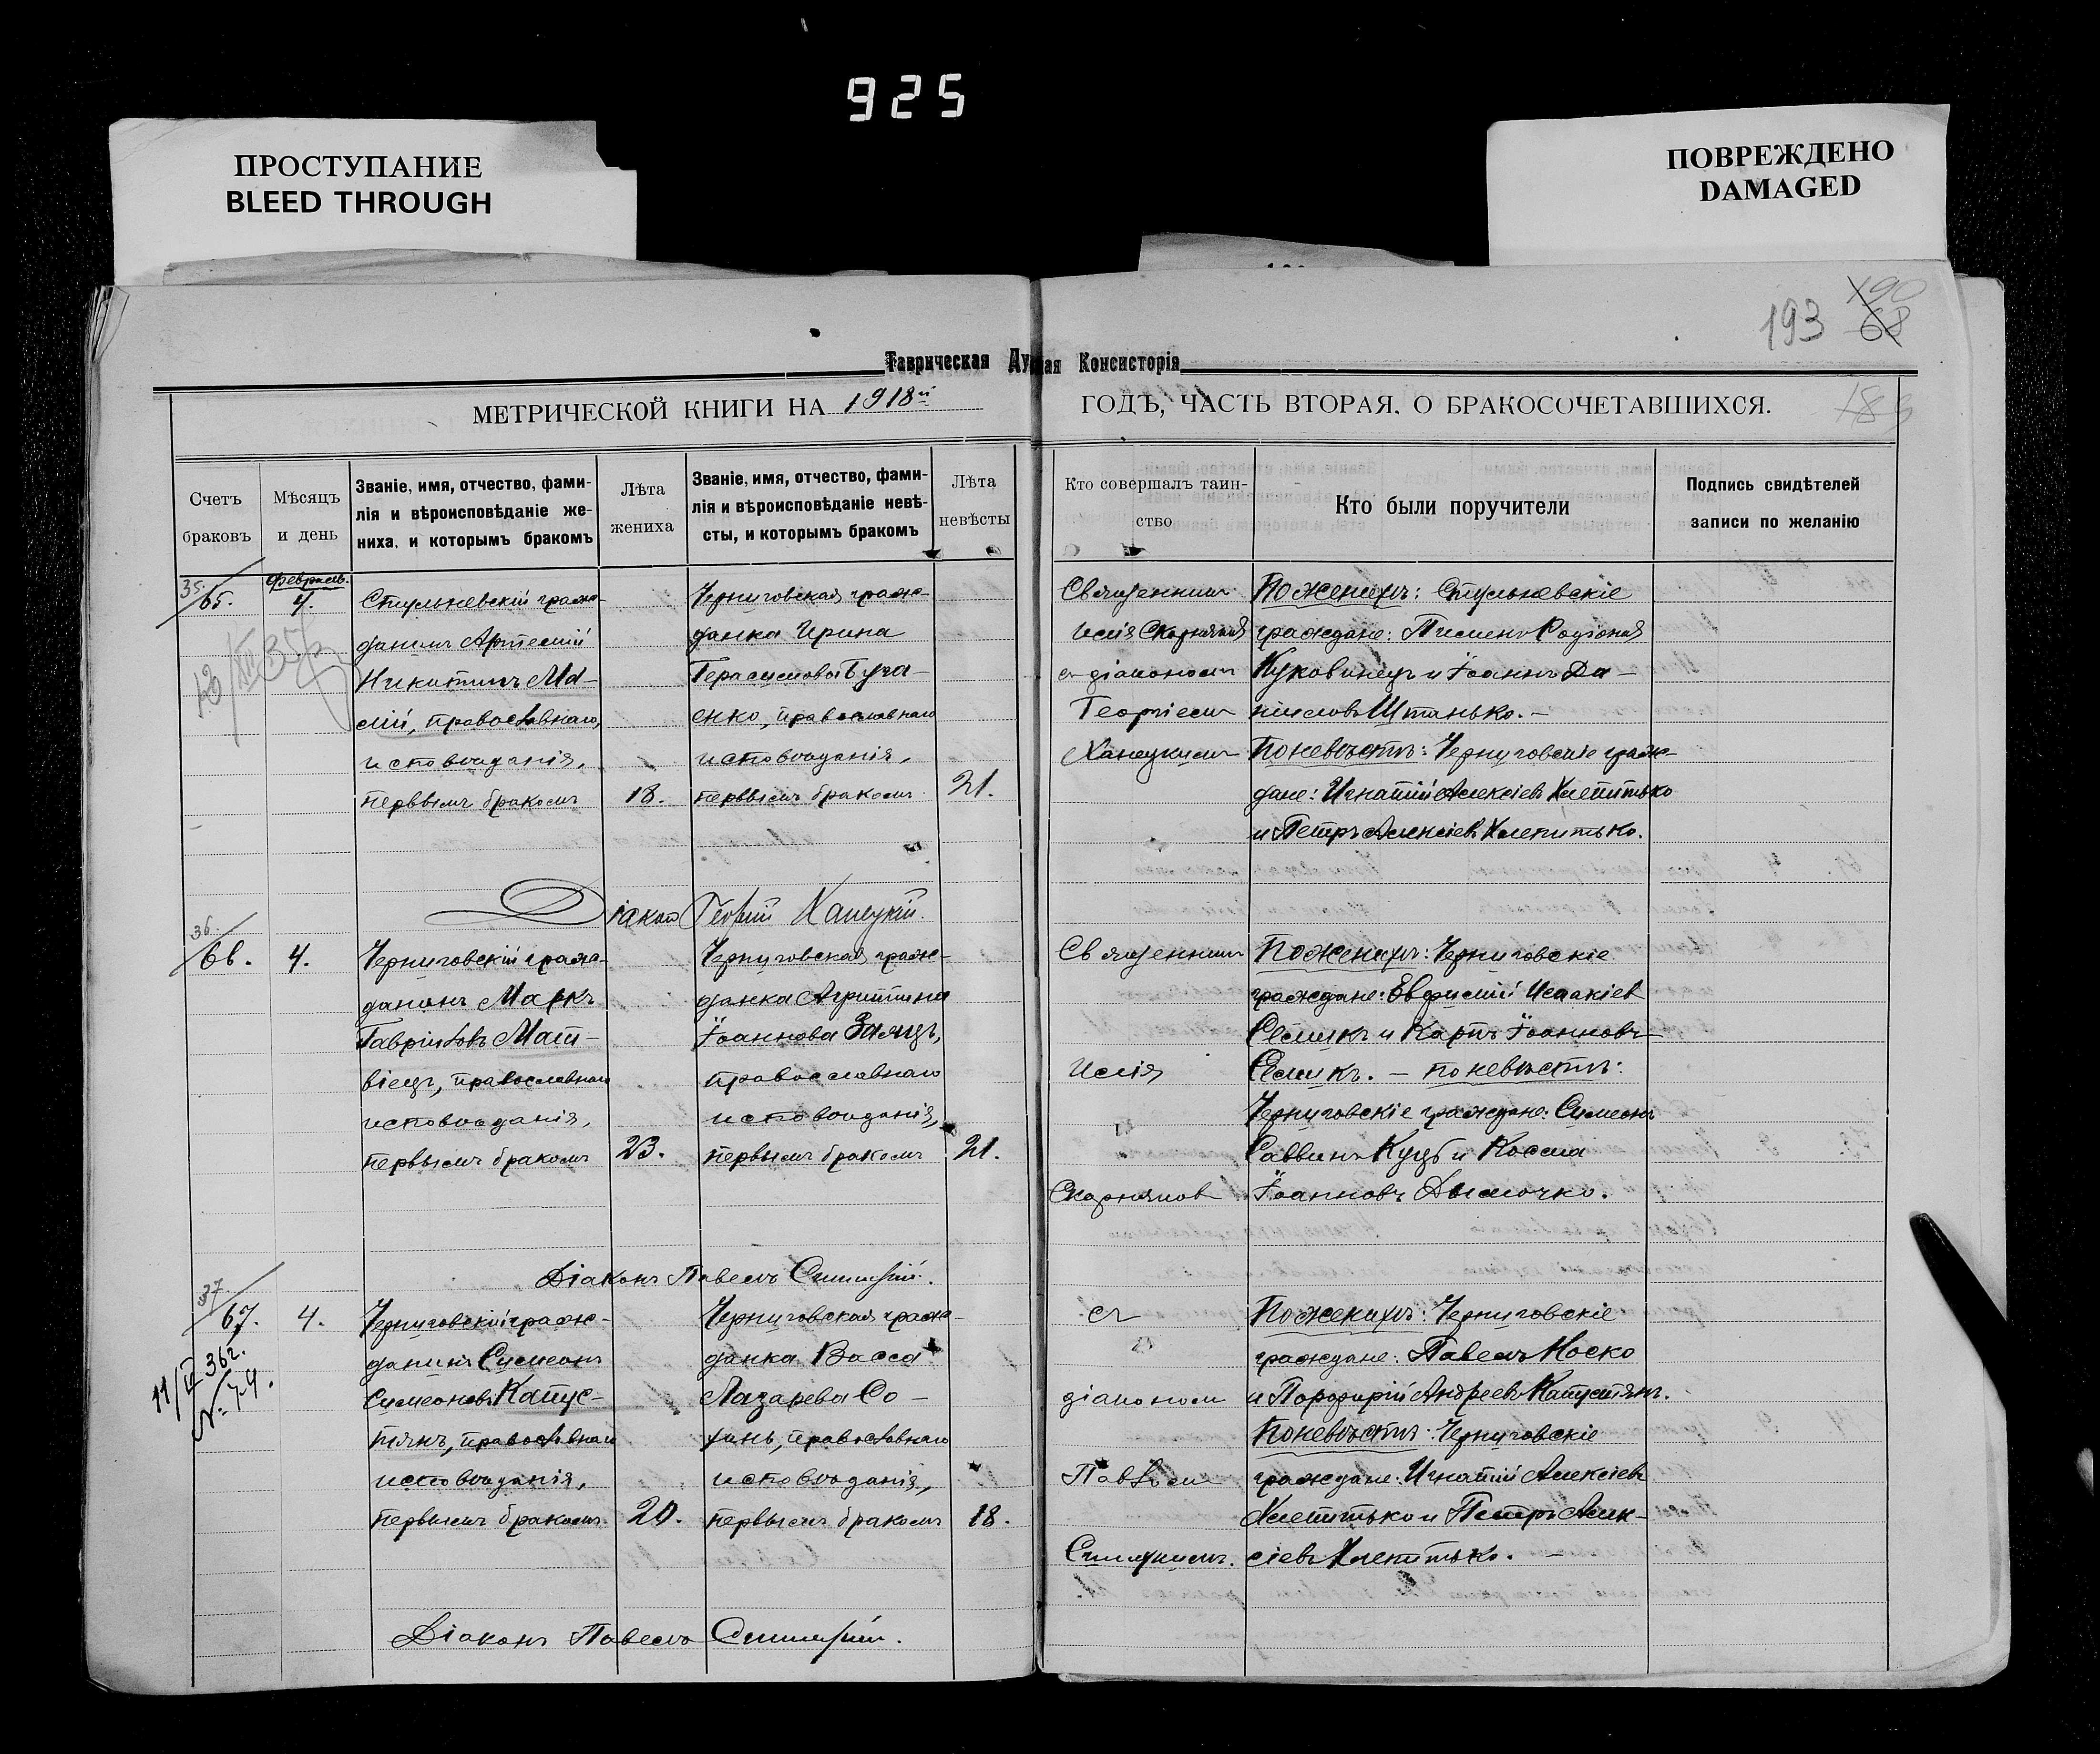 925
ПРОСТУПАНИЕ
BLEED THROUGH
ПОВРЕЖДЕНО
DAMAGED
193 190
68
Таврическая Ду ная Консисторія
МЕТРИЧЕСКОЙ КНИГИ НА 1918й ГОДЪ, ЧАСТЬ ВТОРАЯ, О БРАКОСОЧЕТАВШИХСЯ.
Счетъ браковъ
Мѣсяцъ и день
Званіе, имя, отчество, фами-
лія и вѣроисповѣданіе же-
ниха, и которымъ бракомъ
Лѣта жениха
Званіе, имя, отчество, фами-
лія и вѣроисповѣданіе невѣ-
сты, и которымъ бракомъ
Лѣта невѣсты
Кто совершалъ таин-
ство
Кто были поручители
Подпись свидѣтелей
записи по желанію
35.
65.
Февраль.
4.
Стульневскій граж-
данинъ Артемій
Никитинъ Ма-
лій, православнаго
исповѣданія,
первымъ бракомъ
18.
Черниговская граж-
данка Ирина
Герасимова Буча-
енко, православнаго
исповѣданія,
первымъ бракомъ
21.
Священникъ
Илія Скорняков
съ діакономъ
Георгіемъ
Ханецкимъ
По женихѣ: Стульневскіе
граждане: Пименъ Родіоновъ
Куковинецъ и Іоаннъ Да-
ніиловъ Штанько. -
По невѣстѣ: Черниговскіе граж-
дане: Игнатій Алексіевъ Хлепитько
и Петръ Алексіевъ Хлепитько.
Діакон Георгій Ханецкій.
36.
66.
4.
Черниговскій граж-
данинъ Маркъ
Гавріиловъ Мат-
віецъ, православнаго
исповѣданія,
первымъ бракомъ
23.
Черниговская граж-
данка Агриппина
Іоаннова Заяцъ,
православнаго
исповѣданія,
первымъ бракомъ
21.
Священникъ
Илія
Скорняков
По женихѣ: Черниговскіе
граждане: Евфимій Исаакіев
Семикъ и Карпъ Іоанновъ
Семикъ. - по невѣстѣ:
Черниговскіе граждане: Симеонъ
Саввинъ Куцъ и Косма
Іоанновъ Дымочко.
Діаконъ Павелъ
37
67.
4.
11/ 36г.
№ 74.
Черниговскій граж-
данинъ Симеонъ
Симеоновъ Капус-
тянъ, православнаго
исповѣданія,
первымъ бракомъ
20.
Черниговская граж-
данка Васса
Лазарева Со-
хань, православнаго
исповѣданія,
первымъ бракомъ
18.
съ
діакономъ
Павломъ
По женихѣ: Черниговскіе
граждане: Павелъ Носко
и Порфирій Андреевъ Капустянъ.
По невѣстѣ: Черниговскіе
граждане: Игнатій Алексіевъ
Хлепитько и Петръ Алек-
сіевъ Хлепитько. -
Діаконъ Павелъ